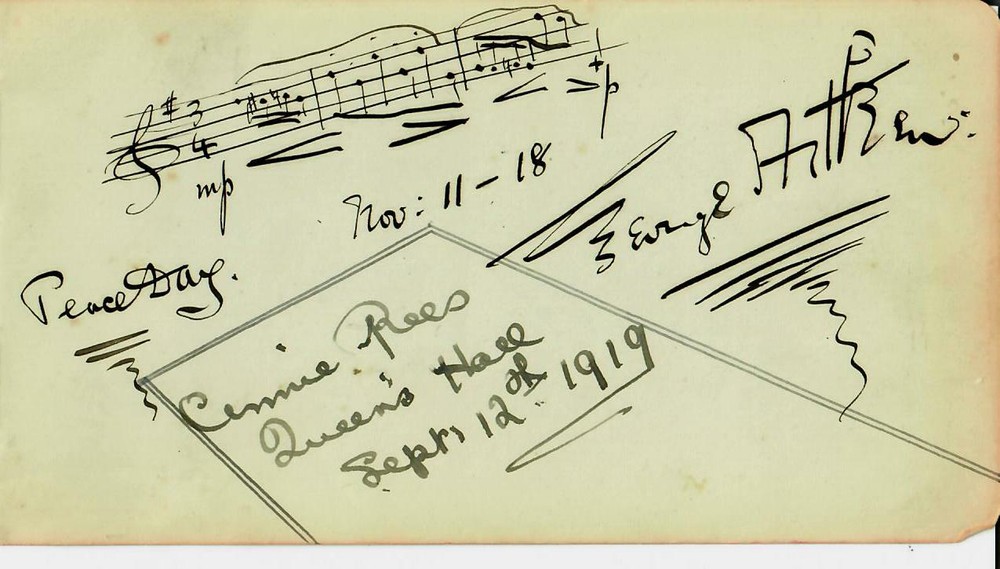 3
4
mp
p
Nov: 11 - 18
Peace Day.
George
Rees
Queen's Hall
Sept: 12th 1919